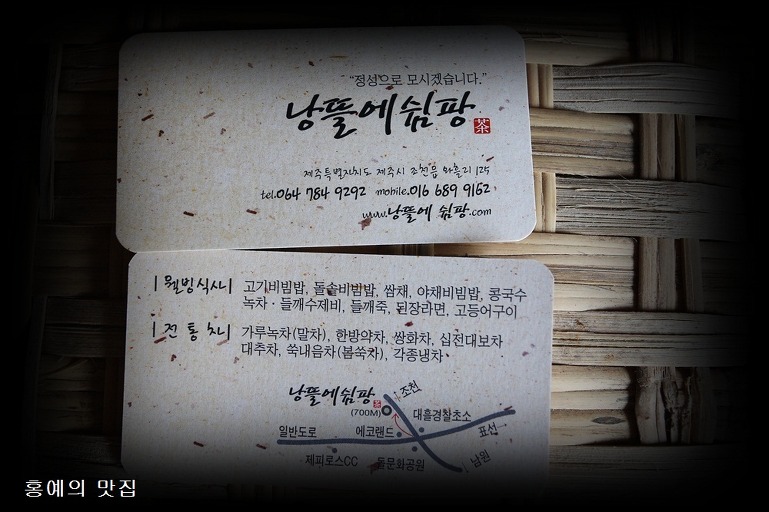 “정성으로 모시겠습니다.”
낭뜰에쉼팡
茶
제주특별자치도 제주시 조천읍 와흘리 125
tel.064 784 9292 mobile.016 689 9162
www.낭뜰에 쉼팡.com
|웰빙식사| 고기비빔밥, 돌솥비빔밥, 쌈채, 야채비빔밥, 콩국수
녹차 · 들깨수제비, 들깨죽, 된장라면, 고등어구이
|전통차| 가루녹차(말차), 한방약차, 쌍화차, 십전대보차
대추차, 쑥내음차(볼쑥차), 각종냉차
낭뜰에쉼팡
(700M)
조천
대흘경찰초소
일반도로
에코랜드
표선
제피로스CC
돌문화공원
남원
홍예의 맛집